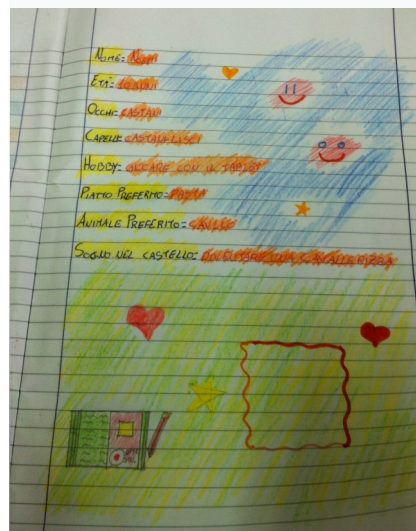 NOME: NOEMI
ETÀ: 10 ANNI
OCCHI: CASTANI
CAPELLI: CASTANI, LISCI
HOBBY: GIOCARE CON IL TABLET
PIATTO PREFERITO: PIZZA
ANIMALE PREFERITO: CAVALLO
SOGNO NEL CASTELLO: DIVENTARE UNA CAVALLERIZZA